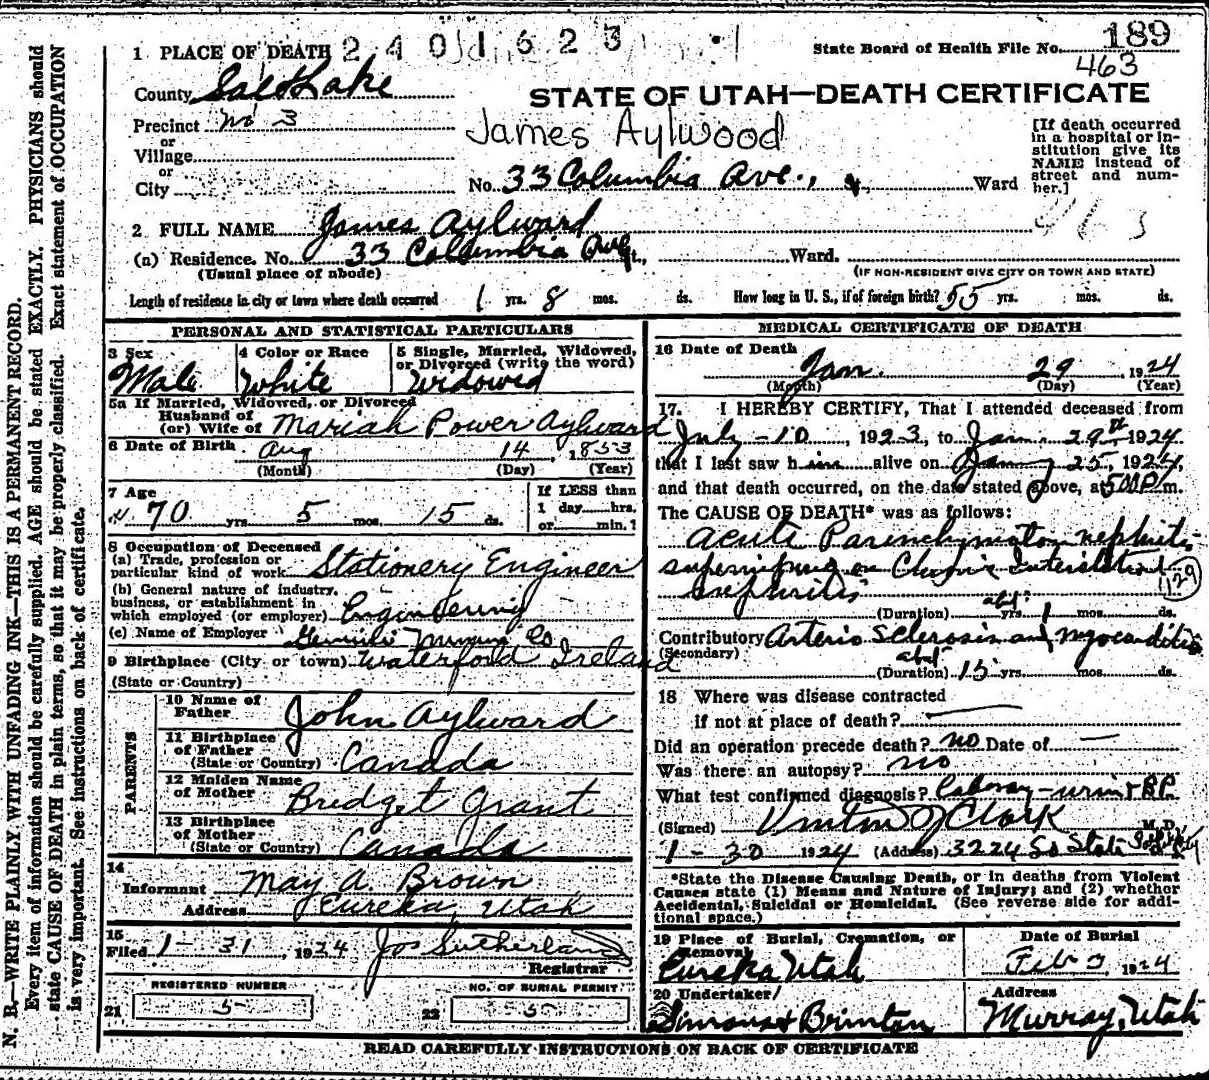 1 PLACE OF DEATH 2401623
State Board of Health File No. 189
463
County Salt Lake
STATE OF UTAH—DEATH CERTIFICATE
Precinct No 3
James Aylwood
or
Village
or
City
No. 33 Columbia Ave., Ward
[If death occurred in a hospital or institution give its NAME instead of street and number.]
2 FULL NAME James Aylward
463
(a) Residence. No. 33 Columbia Ave St., Ward.
(Usual place of abode)
(IF NON-RESIDENT GIVE CITY OR TOWN AND STATE)
Length of residence in city or town where death occurred 1 yrs. 8 mos. ds. How long in U. S., if of foreign birth? 55 yrs. mos. ds.
PERSONAL AND STATISTICAL PARTICULARS
3 Sex
Male
4 Color or Race
White
5 Single, Married, Widowed, or Divorced (write the word)
Widowed
5a If Married, Widowed, or Divorced
Husband of
(or) Wife of Mariah Power Aylward
6 Date of Birth Aug 14, 1853
(Month) (Day) (Year)
7 Age
70 yrs. 5 mos. 15 ds.
If LESS than
1 day hrs.
or min.?
8 Occupation of Deceased
(a) Trade, profession or
particular kind of work Stationery Engineer
(b) General nature of industry,
business, or establishment in
which employed (or employer) Engineering
(c) Name of Employer Gemini Mining Co
9 Birthplace (City or town) Waterford Ireland
(State or Country)
PARENTS
10 Name of
Father John Aylward
11 Birthplace
of Father
(State or Country) Canada
12 Maiden Name
of Mother Bridget Grant
13 Birthplace
of Mother
(State or Country) Canada
14
Informant May A. Brown
Address Eureka, Utah
15
Filed 1-31, 1924 Jos Sutherland
Registrar
REGISTERED NUMBER
21 5
NO. OF BURIAL PERMIT
22 5
MEDICAL CERTIFICATE OF DEATH
16 Date of Death
Jan. 29 1924
(Month) (Day) (Year)
17. I HEREBY CERTIFY, That I attended deceased from
July-10, 1923, to Jan. 29th 1924
that I last saw him alive on Jany 25, 1924,
and that death occurred, on the date stated above, at 5 P.m.
The CAUSE OF DEATH* was as follows:
Acute Parenchymatous nephritis
superimposed on Chronic Interstitial
nephritis
129
(Duration) abt? yrs. 1 mos. ds.
Contributory Arterio Sclerosis and Myocarditis
(Secondary)
(Duration) abt 15 yrs. mos. ds.
18 Where was disease contracted
if not at place of death? —
Did an operation precede death? no Date of —
Was there an autopsy? no
What test confirmed diagnosis? Laboray-urin + BP.
(Signed) Clark M. D.
1-30 1924 (Address) 3224 So State
*State the Disease Causing Death, or in deaths from Violent
Causes state (1) Means and Nature of Injury; and (2) whether
Accidental, Suicidal or Homicidal. (See reverse side for additional space.)
19 Place of Burial, Cremation, or
Removal
Eureka Utah
Date of Burial
Feb 1924
20 Undertaker
Simons & Brinton
Address
Murray, Utah
READ CAREFULLY INSTRUCTIONS ON BACK OF CERTIFICATE
N. B.—WRITE PLAINLY WITH UNFADING INK—THIS IS A PERMANENT RECORD.
Every item of information should be carefully supplied. AGE should be stated EXACTLY. PHYSICIANS should
state CAUSE OF DEATH in plain terms, so that it may be properly classified. Exact statement of OCCUPATION
is very important. See instructions on back of certificate.